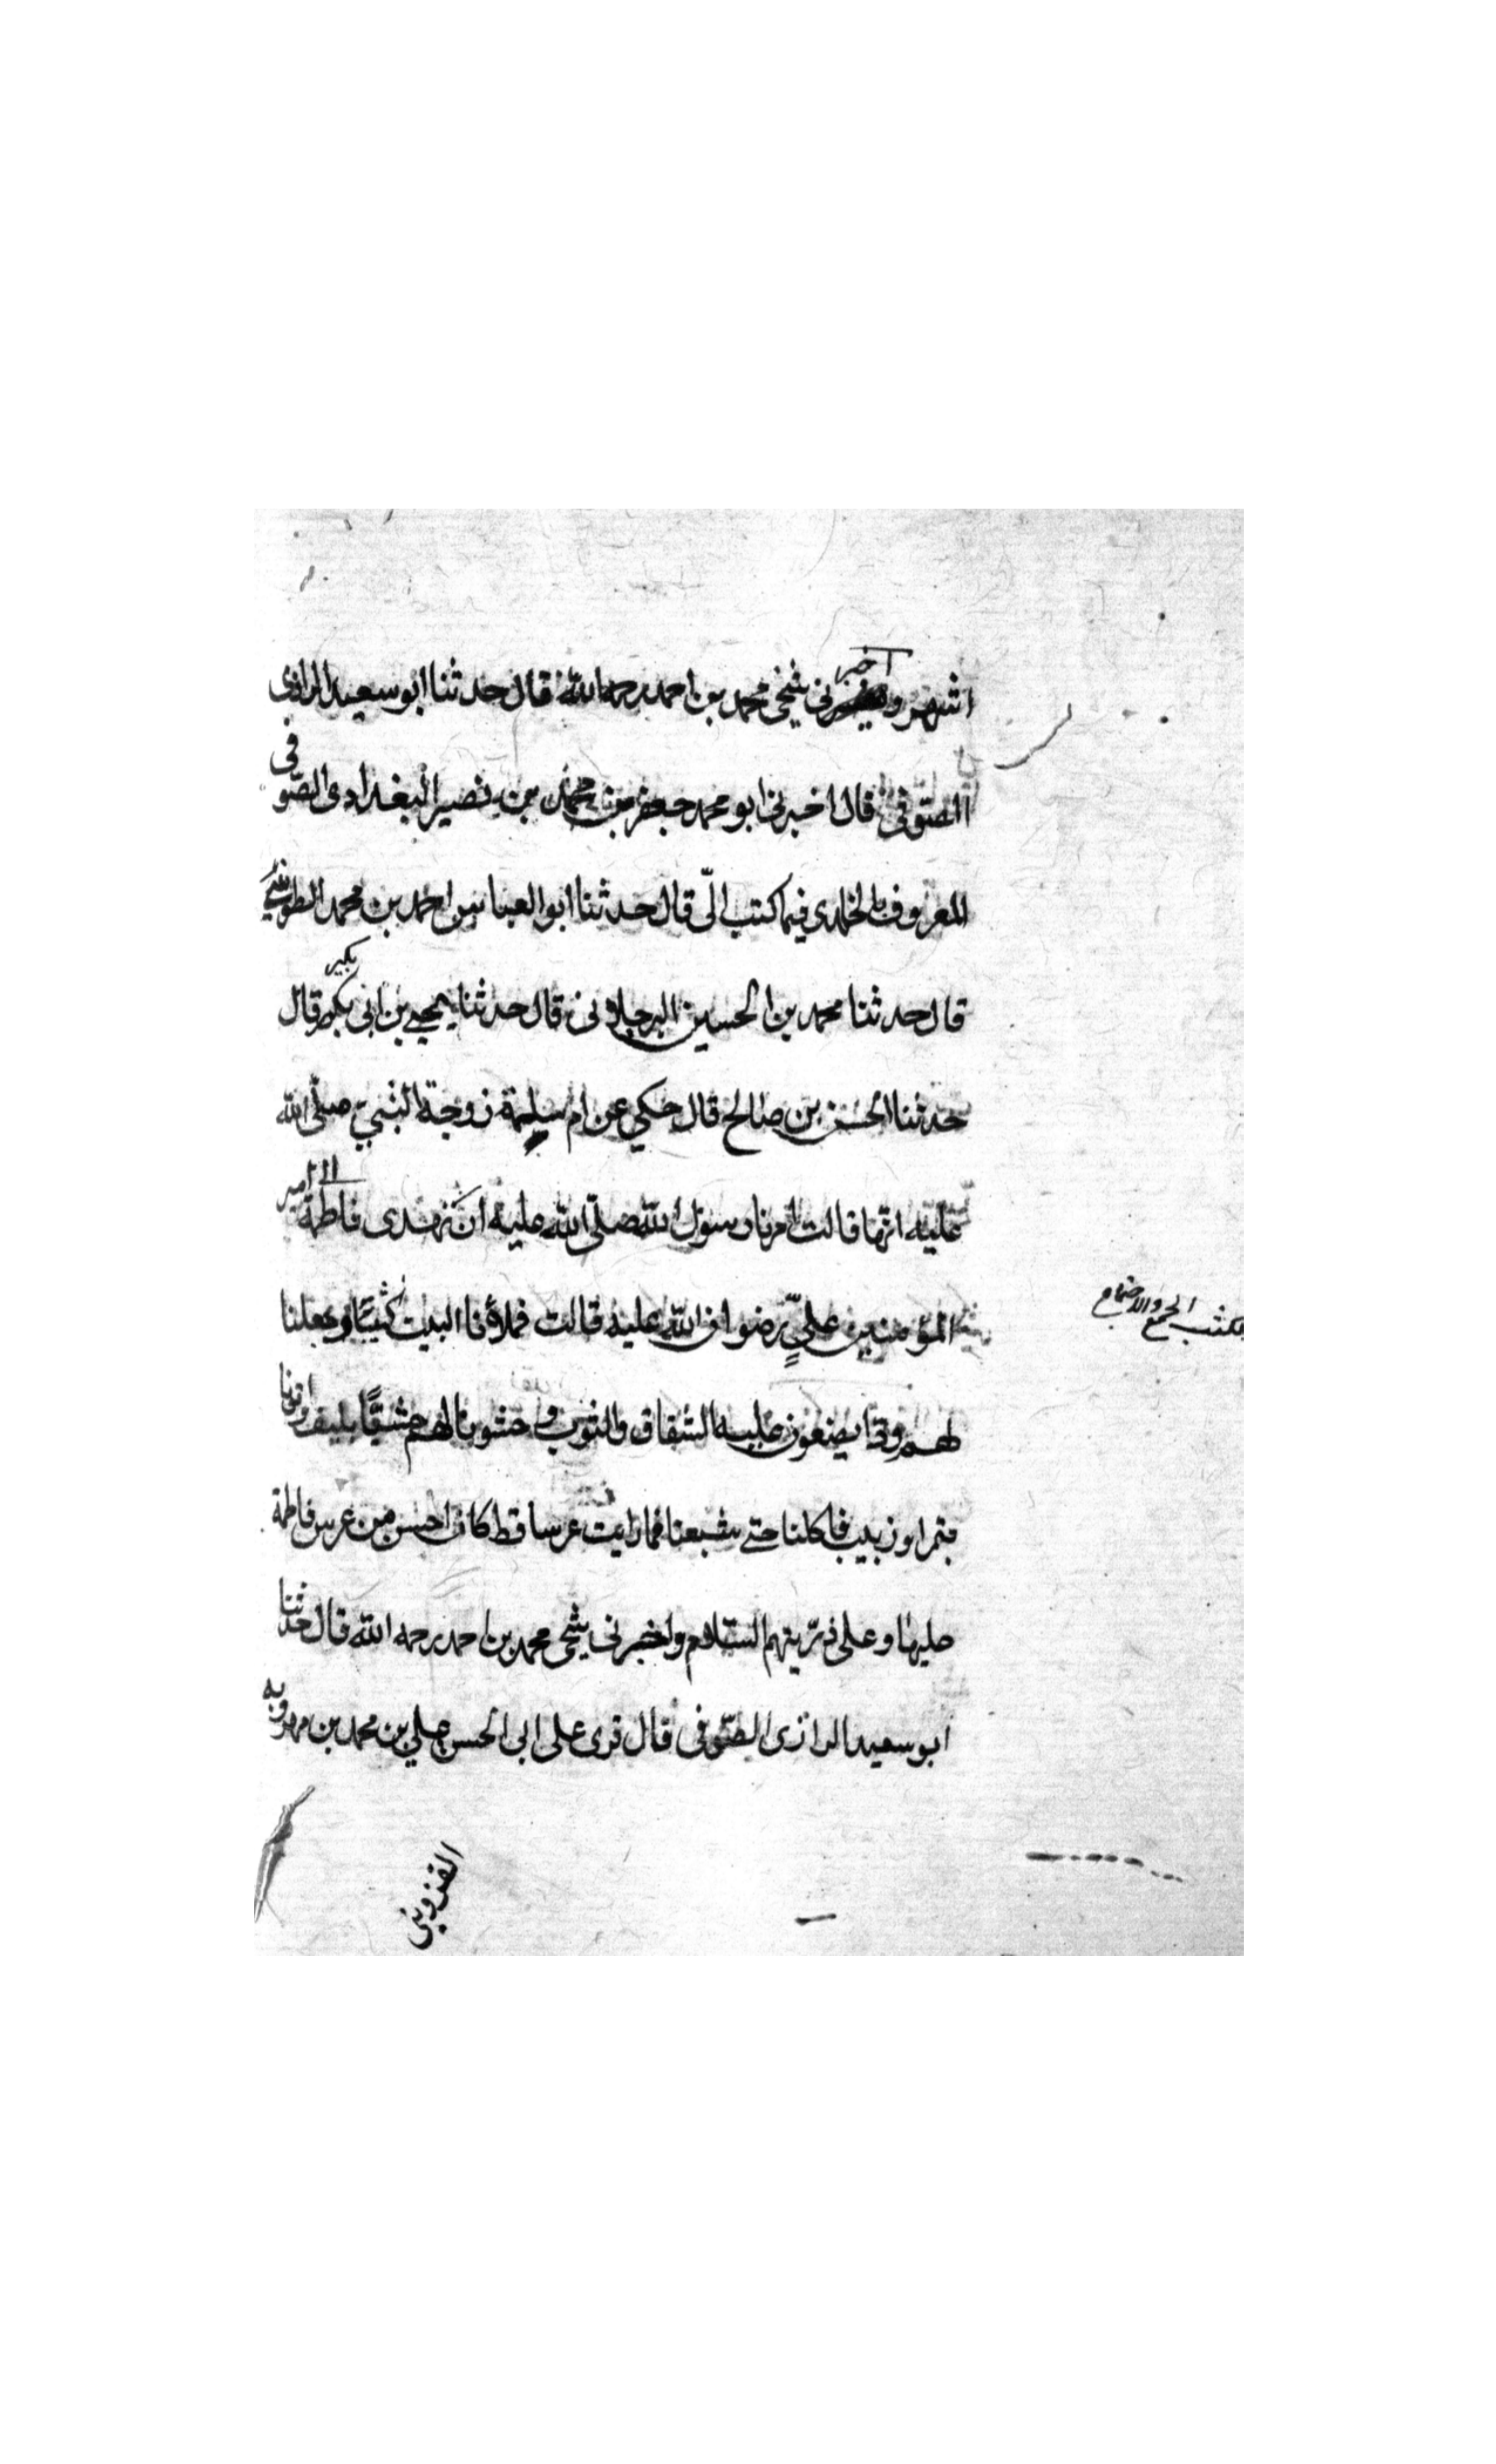 اشهر واخبرنى شيخى محمد بن احمد رحمه الله قال حدثنا ابو سعيد الرازى
الصّوفى قال اخبرنى ابو محمد جعفر بن محمد بن نصير البغدادى الصّوفى
المعروف بالخلدى فيما كتب الىّ قال حدثنا ابو العباس بن احمد بن محمد الطوسى
قال حدثنا محمد بن الحسين البرجلانى قال حدثنا يحيى بن ابى بكير قال
حدثنا الحسن بن صالح قال حكى عن ام سلمة زوجة النبىّ صلّى الله
عليه انّها قالت امرنا رسول الله صلّى الله عليه ان نهدى فاطمة الى امير
المؤمنين علىٍّ رضوان الله عليه قالت فملأنا البيت كثيبًا وجعلنا
لهم وتدا يضعون عليه السّقاق والثوب وحشونا لهم بليف واتونا
بتمر او زبيب فاكلنا حتى شبعنا فما رايت عرسا قط كان احسن من عرس فاطمة
عليها وعلى ذرّيتهم السّلام واخبرنى شيخى محمد بن احمد رحمه الله قال حدثنا
ابو سعيد الرازى الصّوفى قال قرى على ابى الحسن على بن محمد بن مهرويه
القزوينى
الجمع والاجتماع